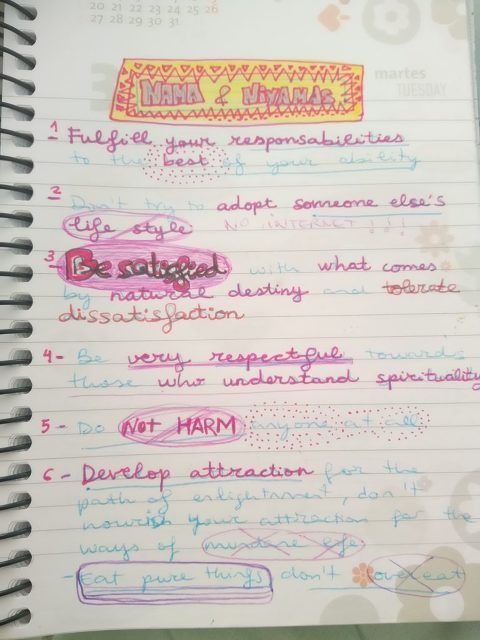 20 21 22 23 24 25 26
27 28 29 30 31
martes
TUESDAY
NAMA & NiYAMAS
1 Fulfill your responsabilities
to the best of your ability
2 Don't try to adopt someone else's
life style NO INTERNET!!!
3- Be satisfied with what comes
by natural destiny and tolerate
dissatisfaction
4- Be very respectful towards
those who understand spirituality
5- Do NOT HARM anyone at all
6- Develop attraction for the
path of enlightment, don't
nourish your attraction for the
ways of mundane life
- Eat pure things don't overeat